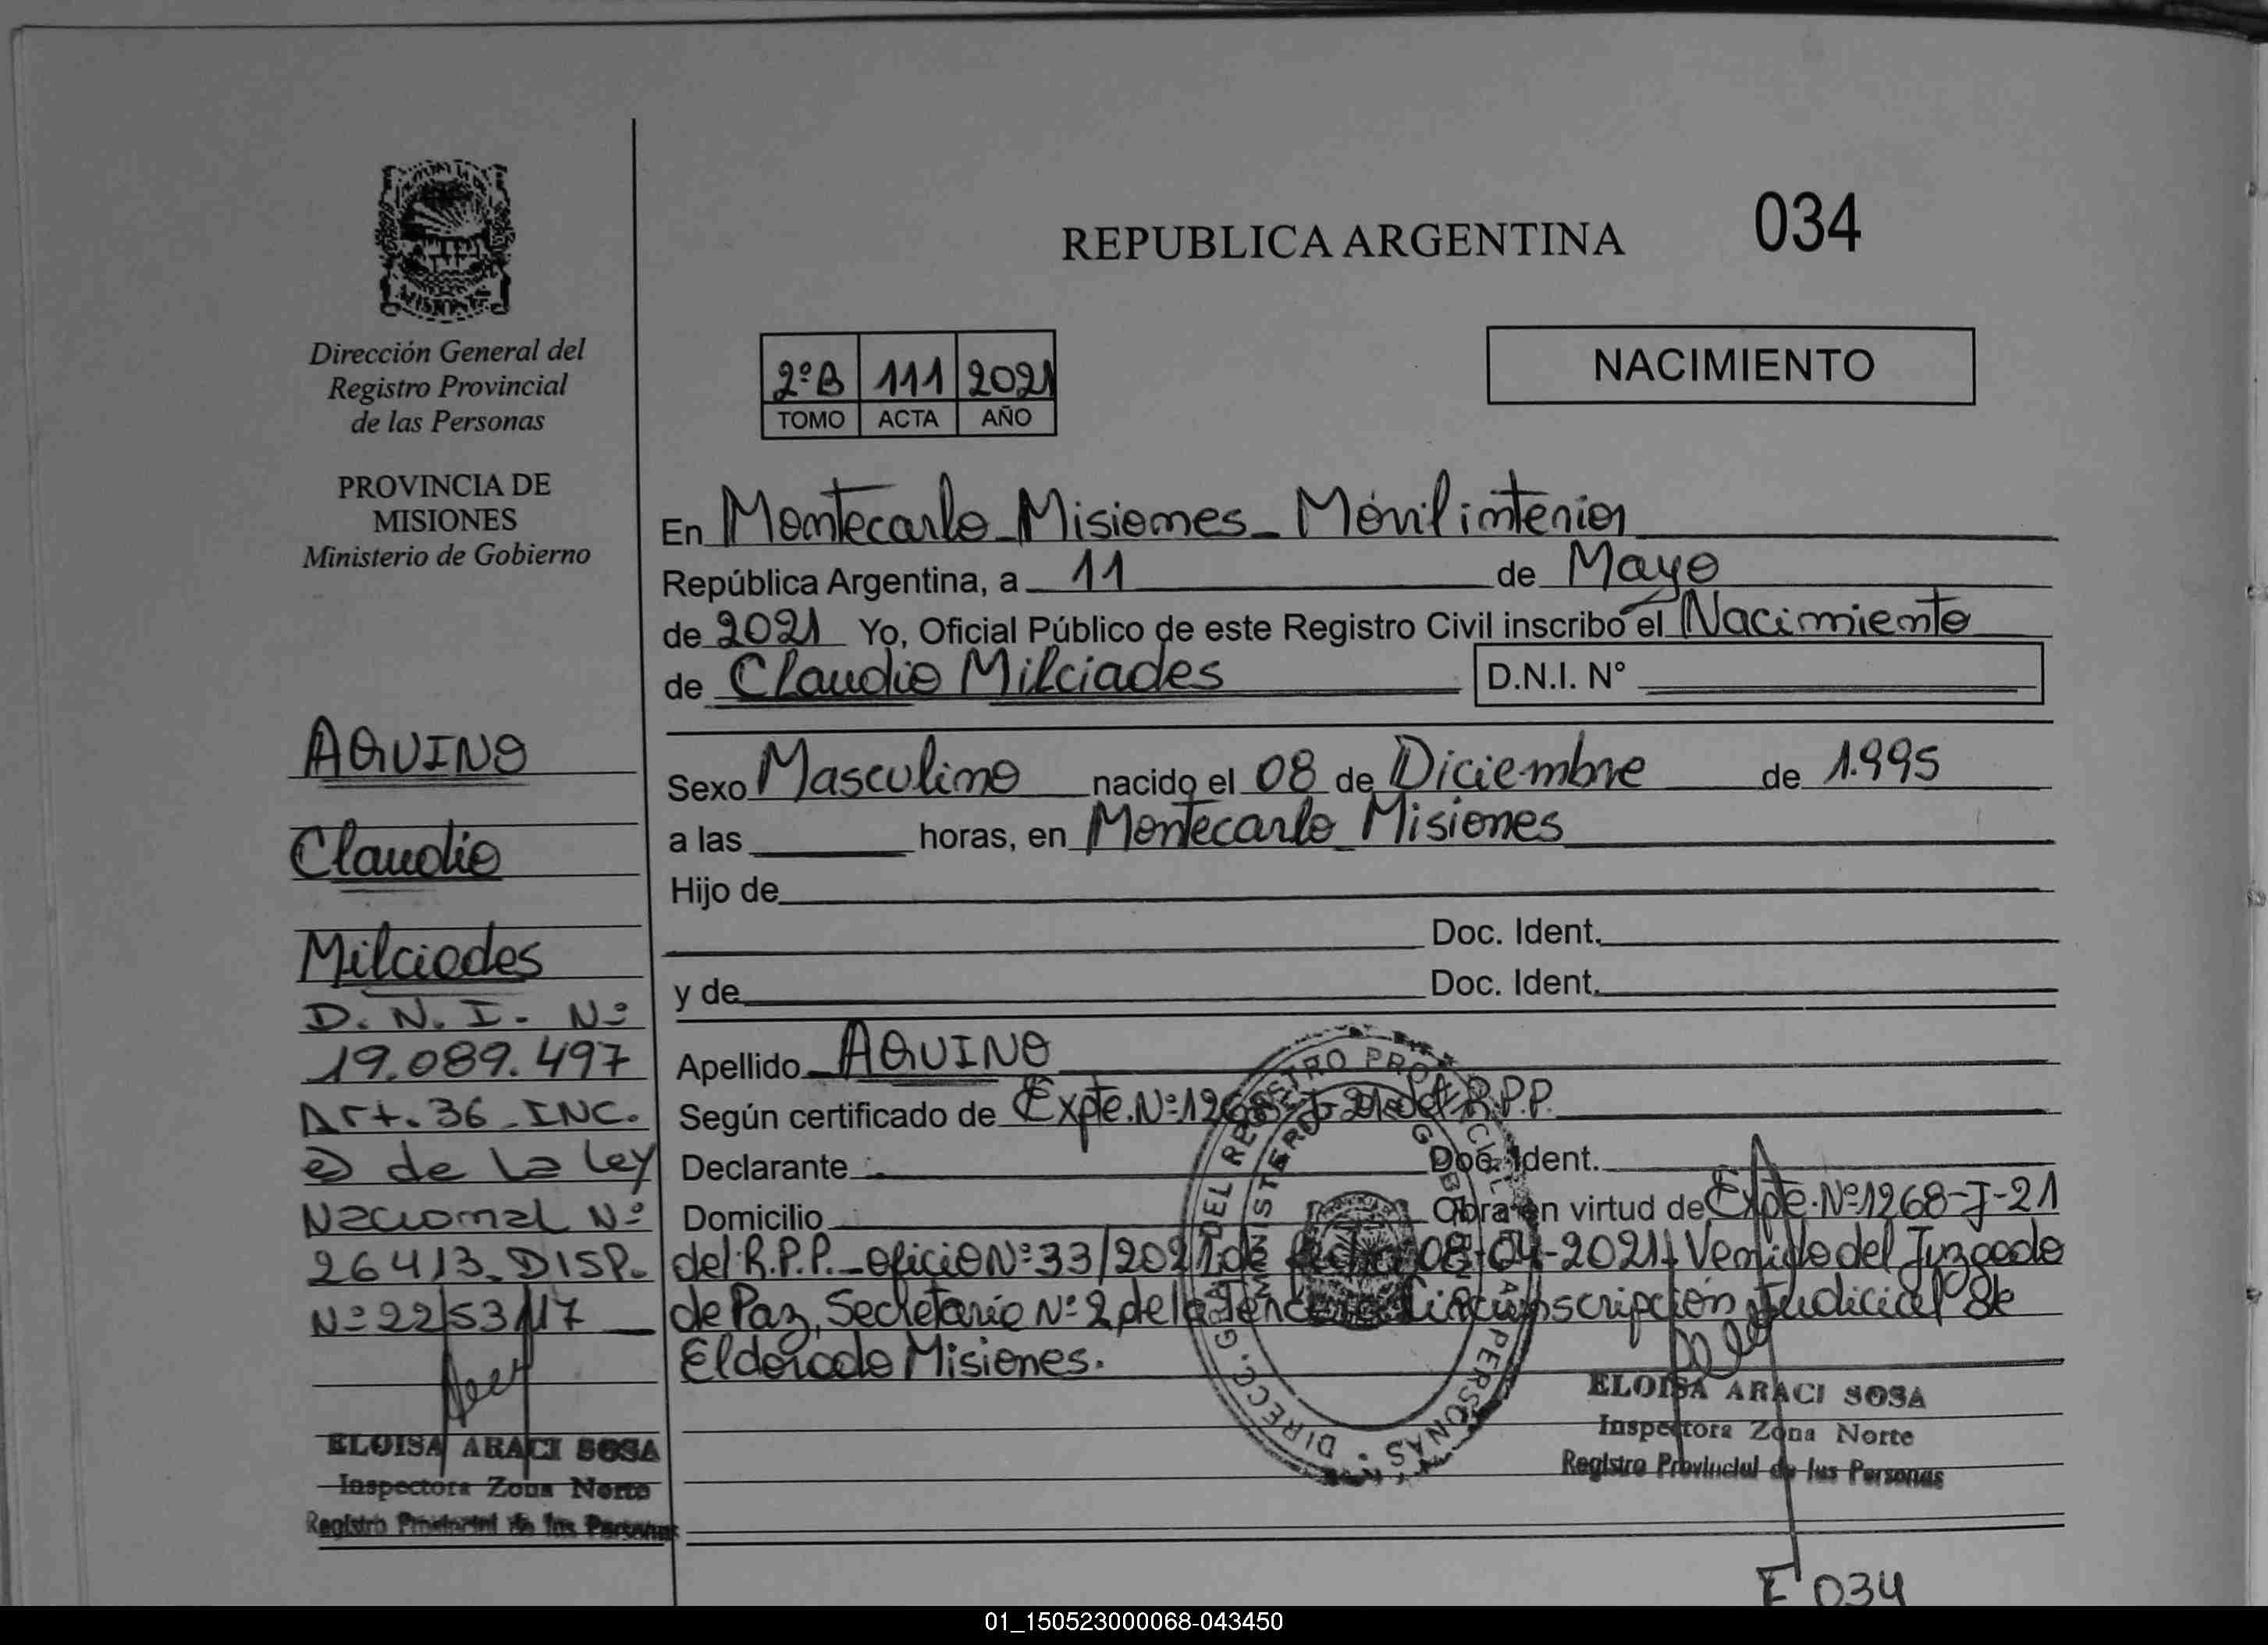 REPUBLICA ARGENTINA
034
Dirección General del
Registro Provincial
de las Personas
PROVINCIA DE
MISIONES
Ministerio de Gobierno
2ºB 111 2021
TOMO ACTA AÑO
NACIMIENTO
En Montecarlo Misiones - Móvil interior
República Argentina, a 11 de Mayo
de 2021 Yo, Oficial Público de este Registro Civil inscribo el Nacimiento
de Claudio Milciades D.N.I. Nº
AQUINO
Claudio
Milciades
D.N.I. Nº
19.089.497
Art. 36 - INC.
e) de la Ley
Nacional Nº
26413. DISP.
Nº 22/53/17
ELOISA ARACI SOSA
Inspectora Zona Norte
Registro Provincial de las Personas
Sexo Masculino nacido el 08 de Diciembre de 1.995
a las horas, en Montecarlo Misiones
Hijo de
Doc. Ident.
y de Doc. Ident.
Apellido AQUINO
Según certificado de Expte. Nº 1268-J-21 del R.P.P.
Declarante Doc. Ident.
Domicilio Obra en virtud de Expte. Nº 1268-J-21
del R.P.P. - Oficio Nº 33/2021 de fecha 08-04-2021 Venido del Juzgado
de Paz, Secretaría Nº 2 de la Tercera Circunscripción Judicial de
Eldorado Misiones.
ELOISA ARACI SOSA
Inspectora Zona Norte
Registro Provincial de las Personas
DIRECC. G DEL REGISTRO PROVINCIAL PERSONAS
MINISTERIO GOB
F 034
01_150523000068-043450